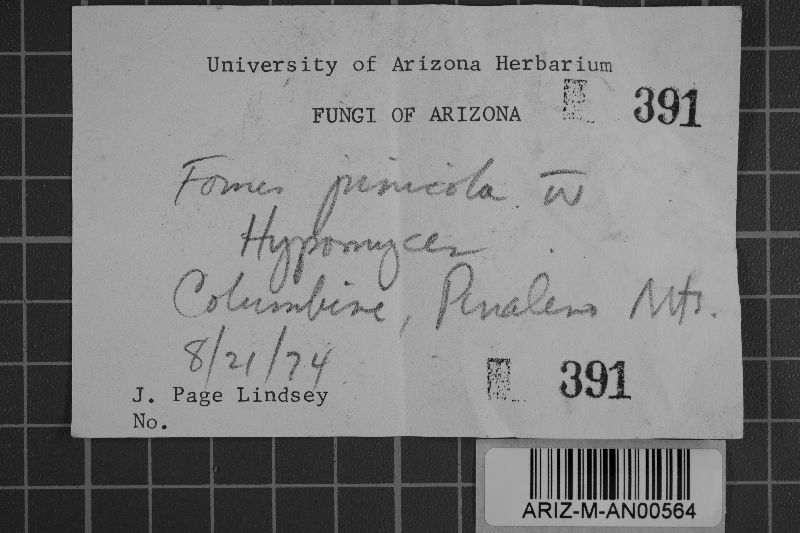 University of Arizona Herbarium
FUNGI OF ARIZONA 391
Fomes pinicola w̅
Hypomyces
Columbine, Pinaleno Mts.
8/21/74
391
J. Page Lindsey
No.
ARIZ-M-AN00564